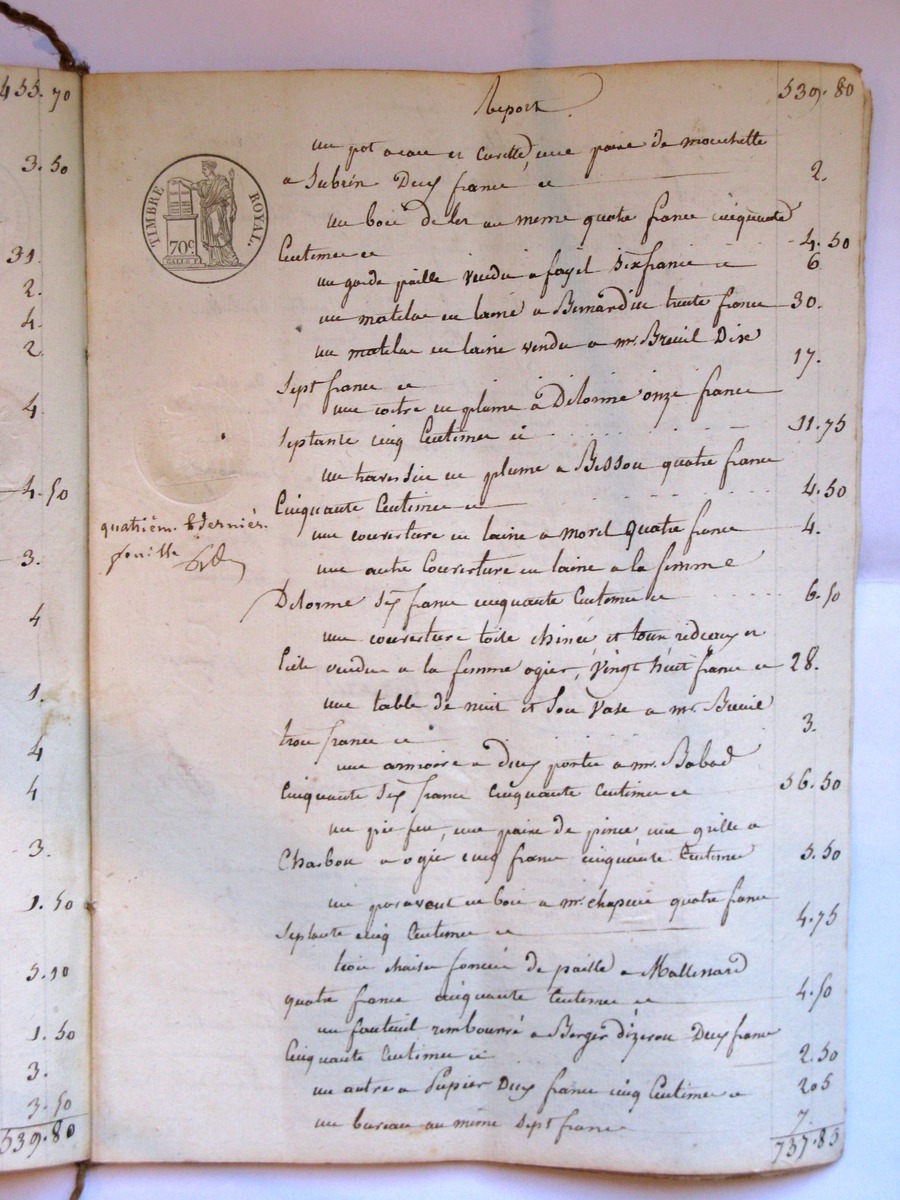 455.70
3.50
31.
2.
4.
2.
4
4.50
3.
4
1.
4
4
3.
1.50
5.10
1.50
3.
3.50
539.80
Report 539.80
TIMBRE ROYAL.
70c.
quatrièm. & dernièr.
feuille
un pot a eau et cuvette, une paire de mouchette
a Subrin Deux franc ci 2.
un bois de lit au meme quatre franc cinquante
Centimes ci 4.50
un garde paille vendu a fayel six franc ci 6
un matelas en laine a Bernardin trente franc 30.
un matelas en laine vendu a mr. Breuil Dix
Sept franc ci 17.
une coitre en plume a Delorme onze franc
Septante cinq Centimes ci 11.75
un traversin en plume a Besson quatre franc
Cinquante Centimes ci 4.50
une couverture en laine a morel quatre franc 4.
une autre Couverture en laine a la femme
Delorme six franc cinquante Centimes ci 6.50
une couverture toile chinée et tour rideaux et
Ciel vendu a la femme ogier, vingt huit franc ci 28.
une table de nuit et Son vase a mr. Breuil
trois franc ci 3.
une armoire a deux portes a mr. Babad
Cinquante six franc Cinquante Centimes ci 56.50
un gril feu, une paire de pince une grille a
Charbon a ogier cinq franc cinquante Centimes 5.50
un paravent en bois a mr. chapuis quatre franc
Septante cinq Centimes ci 4.75
trois chaises foncées de paille a Mallenard
quatre franc cinquante Centimes ci 4.50
un fauteuil rembourré a Berger dizerou Deux franc
Cinquante Centimes ci 2.50
un autre a Pupier Deux franc cinq Centimes ci 2.05
un bureau au même Sept franc 7.
737.85